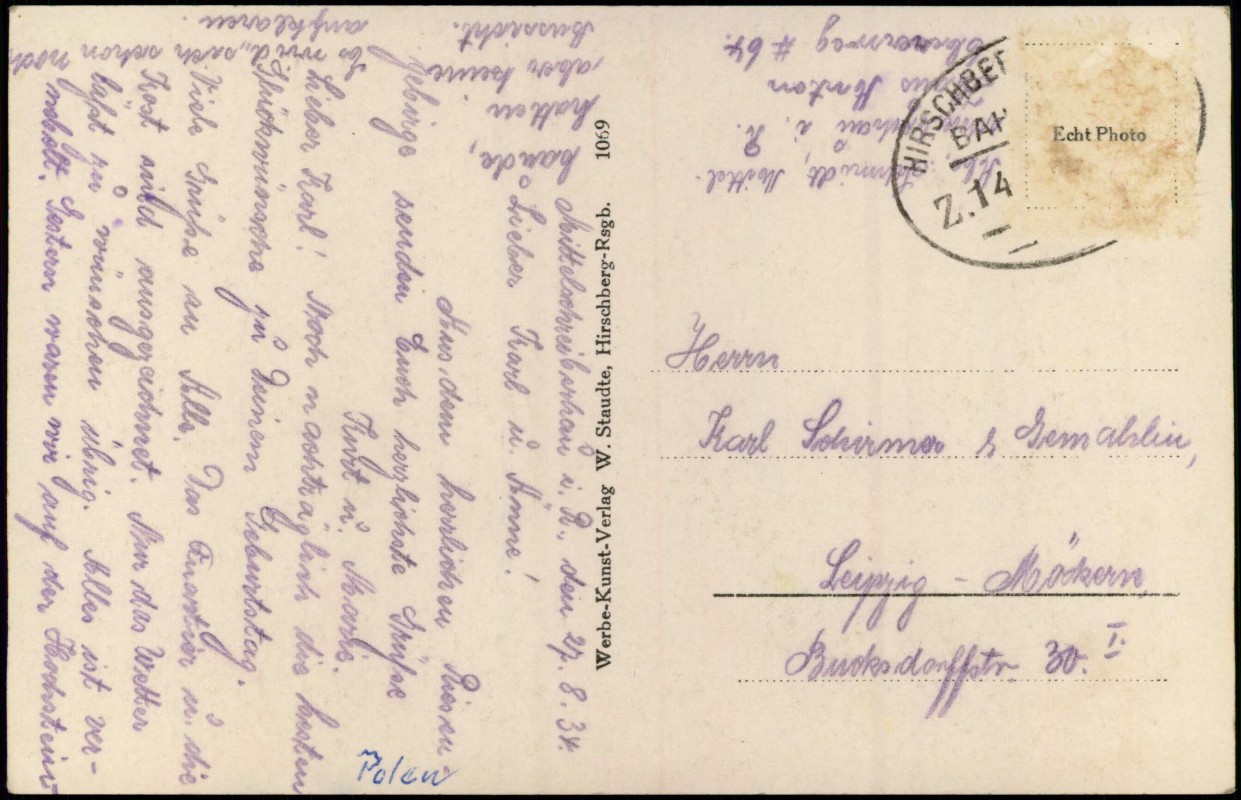 Mittelschreiberhau i. R., den 27. 8. 34.
Lieber Karl u. Änne!
Aus dem herrlichen Riesen-
gebirge senden Euch herzlichste Grüße
Kurt u. Marie.
Lieber Karl! Noch nachträglich die besten
Glückwünsche zu Deinem Geburtstag.
Viele Grüße an Alle. Das Quartier u. die
Kost sind ausgezeichnet. Nur das Wetter
läßt zu wünschen übrig. Alles ist ver-
nebelt. Gestern waren wir auf der Hochstein-
baude,
hatten
aber keine
Aussicht.
Es wird sich schon noch
aufklaren.
Werbe-Kunst-Verlag W. Staudte, Hirschberg-Rsgb. 1069
Schmidt, Mittel-
i. R.
Haus
#64.
HIRSCHBE
BAH
Z.14
Echt Photo
Herrn
Karl Schirmer & Gemahlin,
Leipzig - Möckern,
Bucksdorffstr. 30. I.
Polen